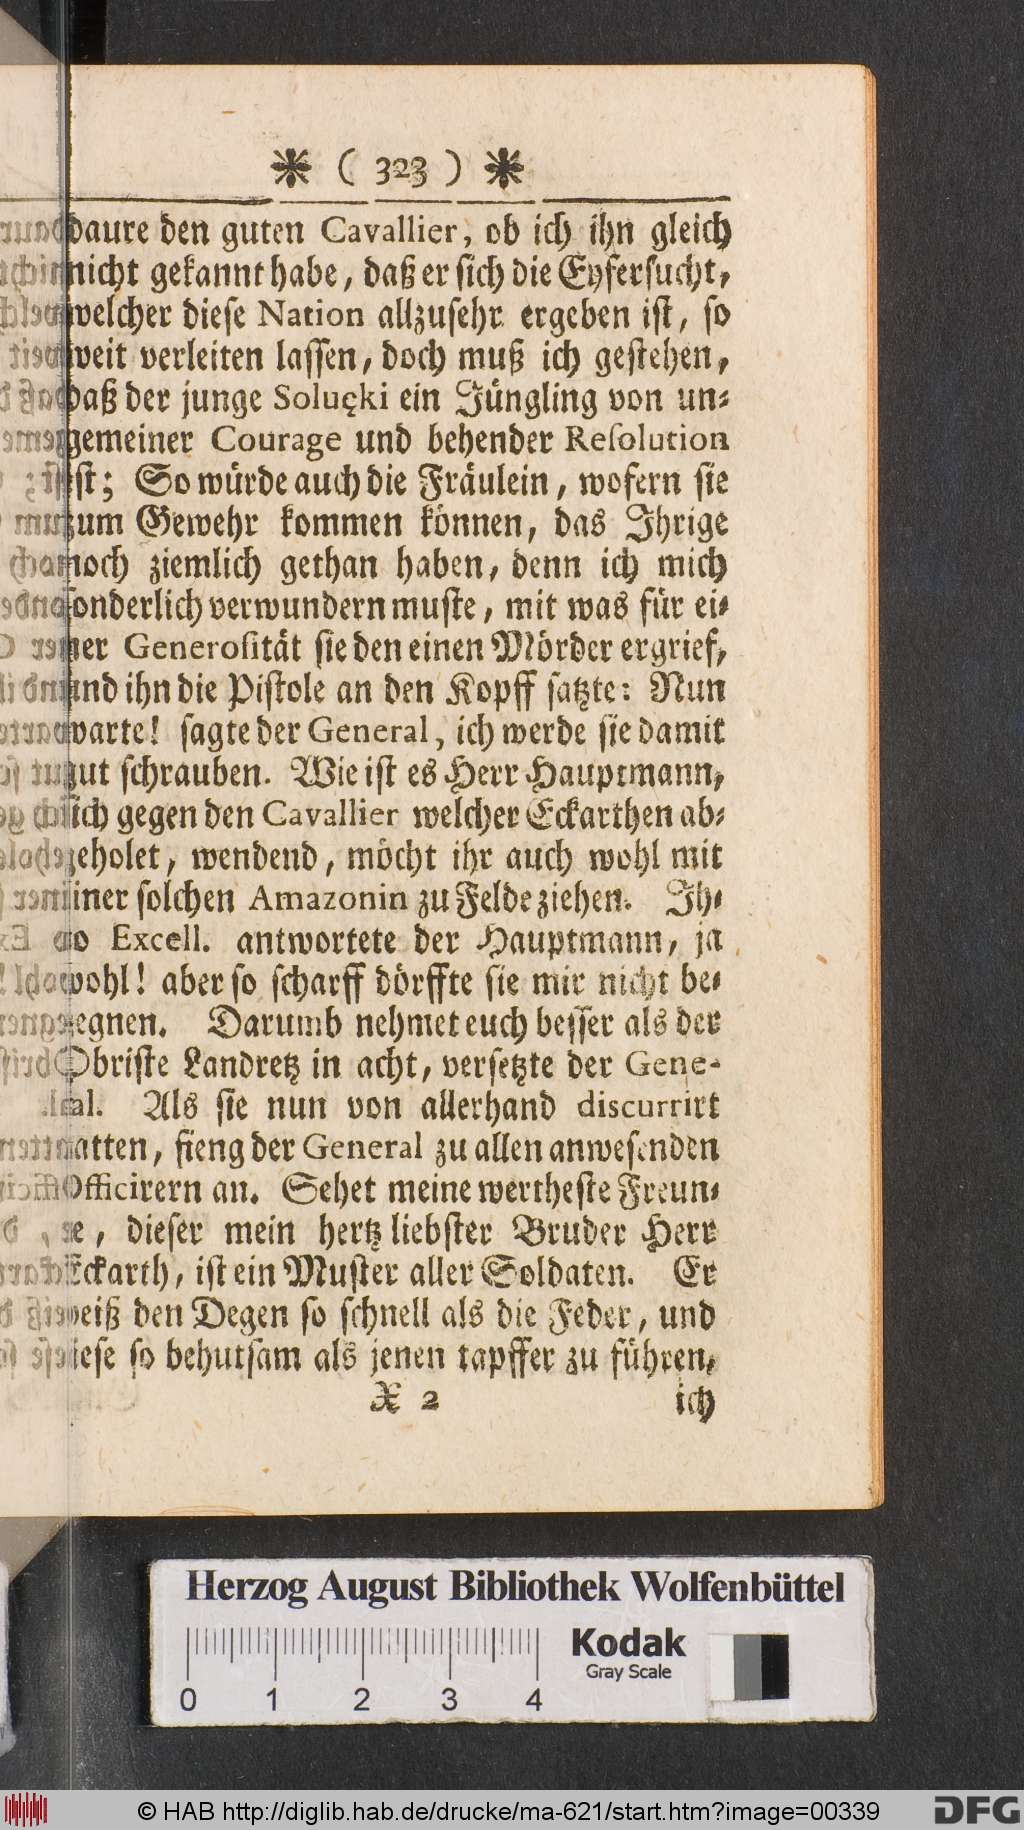 ✻ ( 323 ) ✻
daure den guten Cavallier, ob ich ihn gleich
nicht gekannt habe, daß er sich die Eyfersucht,
welcher diese Nation allzusehr ergeben ist, so
weit verleiten lassen, doch muß ich gestehen,
daß der junge Soluęki ein Jüngling von un-
gemeiner Courage und behender Resolution
ist; So würde auch die Fräulein, wofern sie
zum Gewehr kommen können, das Ihrige
noch ziemlich gethan haben, denn ich mich
sonderlich verwundern muste, mit was für ei-
ner Generosität sie den einen Mörder ergrief,
und ihn die Pistole an den Kopff satzte: Nun
warte! sagte der General, ich werde sie damit
gut schrauben. Wie ist es Herr Hauptmann,
sich gegen den Cavallier welcher Eckarthen ab-
geholet, wendend, möcht ihr auch wohl mit
einer solchen Amazonin zu Felde ziehen. Ih-
ro Excell. antwortete der Hauptmann, ja
wohl! aber so scharff dörffte sie mir nicht be-
gegnen. Darumb nehmet euch besser als der
Obriste Landretz in acht, versetzte der Gene-
ral. Als sie nun von allerhand discurrirt
hatten, fieng der General zu allen anwesenden
Officirern an. Sehet meine wertheste Freun-
de, dieser mein hertz liebster Bruder Herr
Eckarth, ist ein Muster aller Soldaten. Er
weiß den Degen so schnell als die Feder, und
diese so behutsam als jenen tapffer zu führen,
X 2 ich
Herzog August Bibliothek Wolfenbüttel
Kodak
Gray Scale
0 1 2 3 4
© HAB http://diglib.hab.de/drucke/ma-621/start.htm?image=00339
DFG